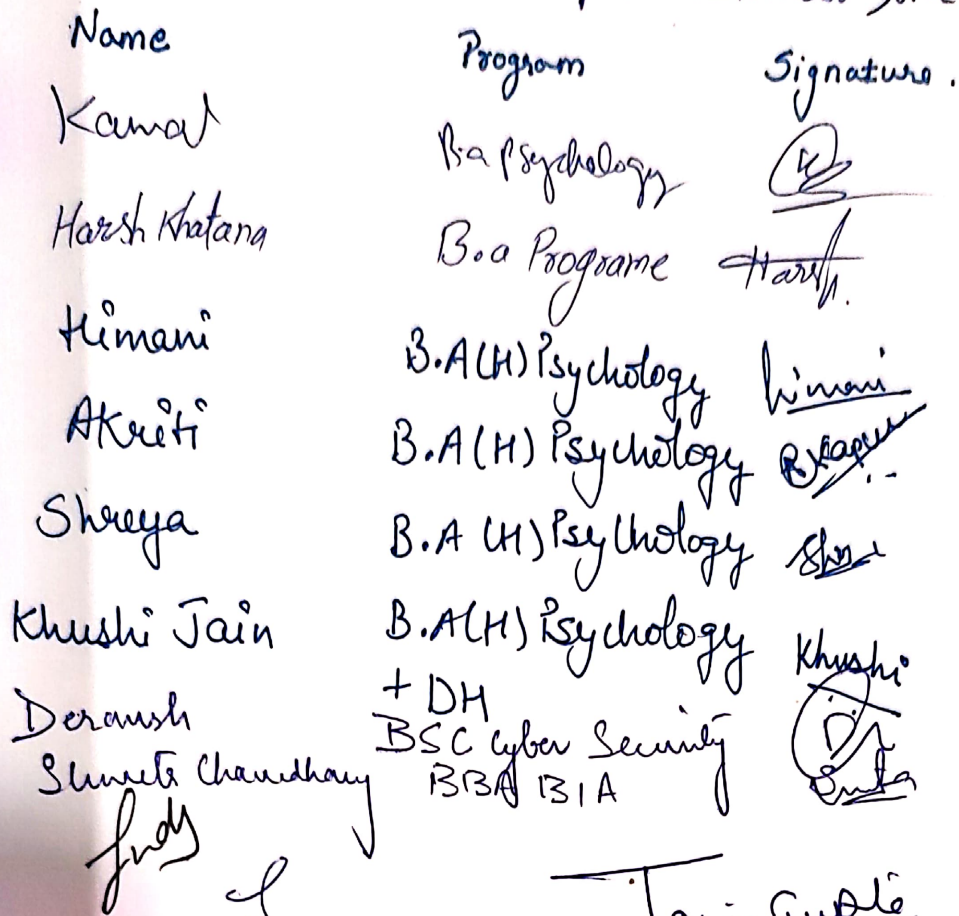 Name Program Signature.
Kamal B.a Psychology
Harsh Khatana B.a Programe Harsh.
Himani B.A(H) Psychology himani
Akriti B.A(H) Psychology
Shreya B.A (H) Psychology
Khushi Jain B.A(H) Psychology Khushi
+ DH
Devansh BSC Cyber Security
Chaudhary BBA BIA
Gupta